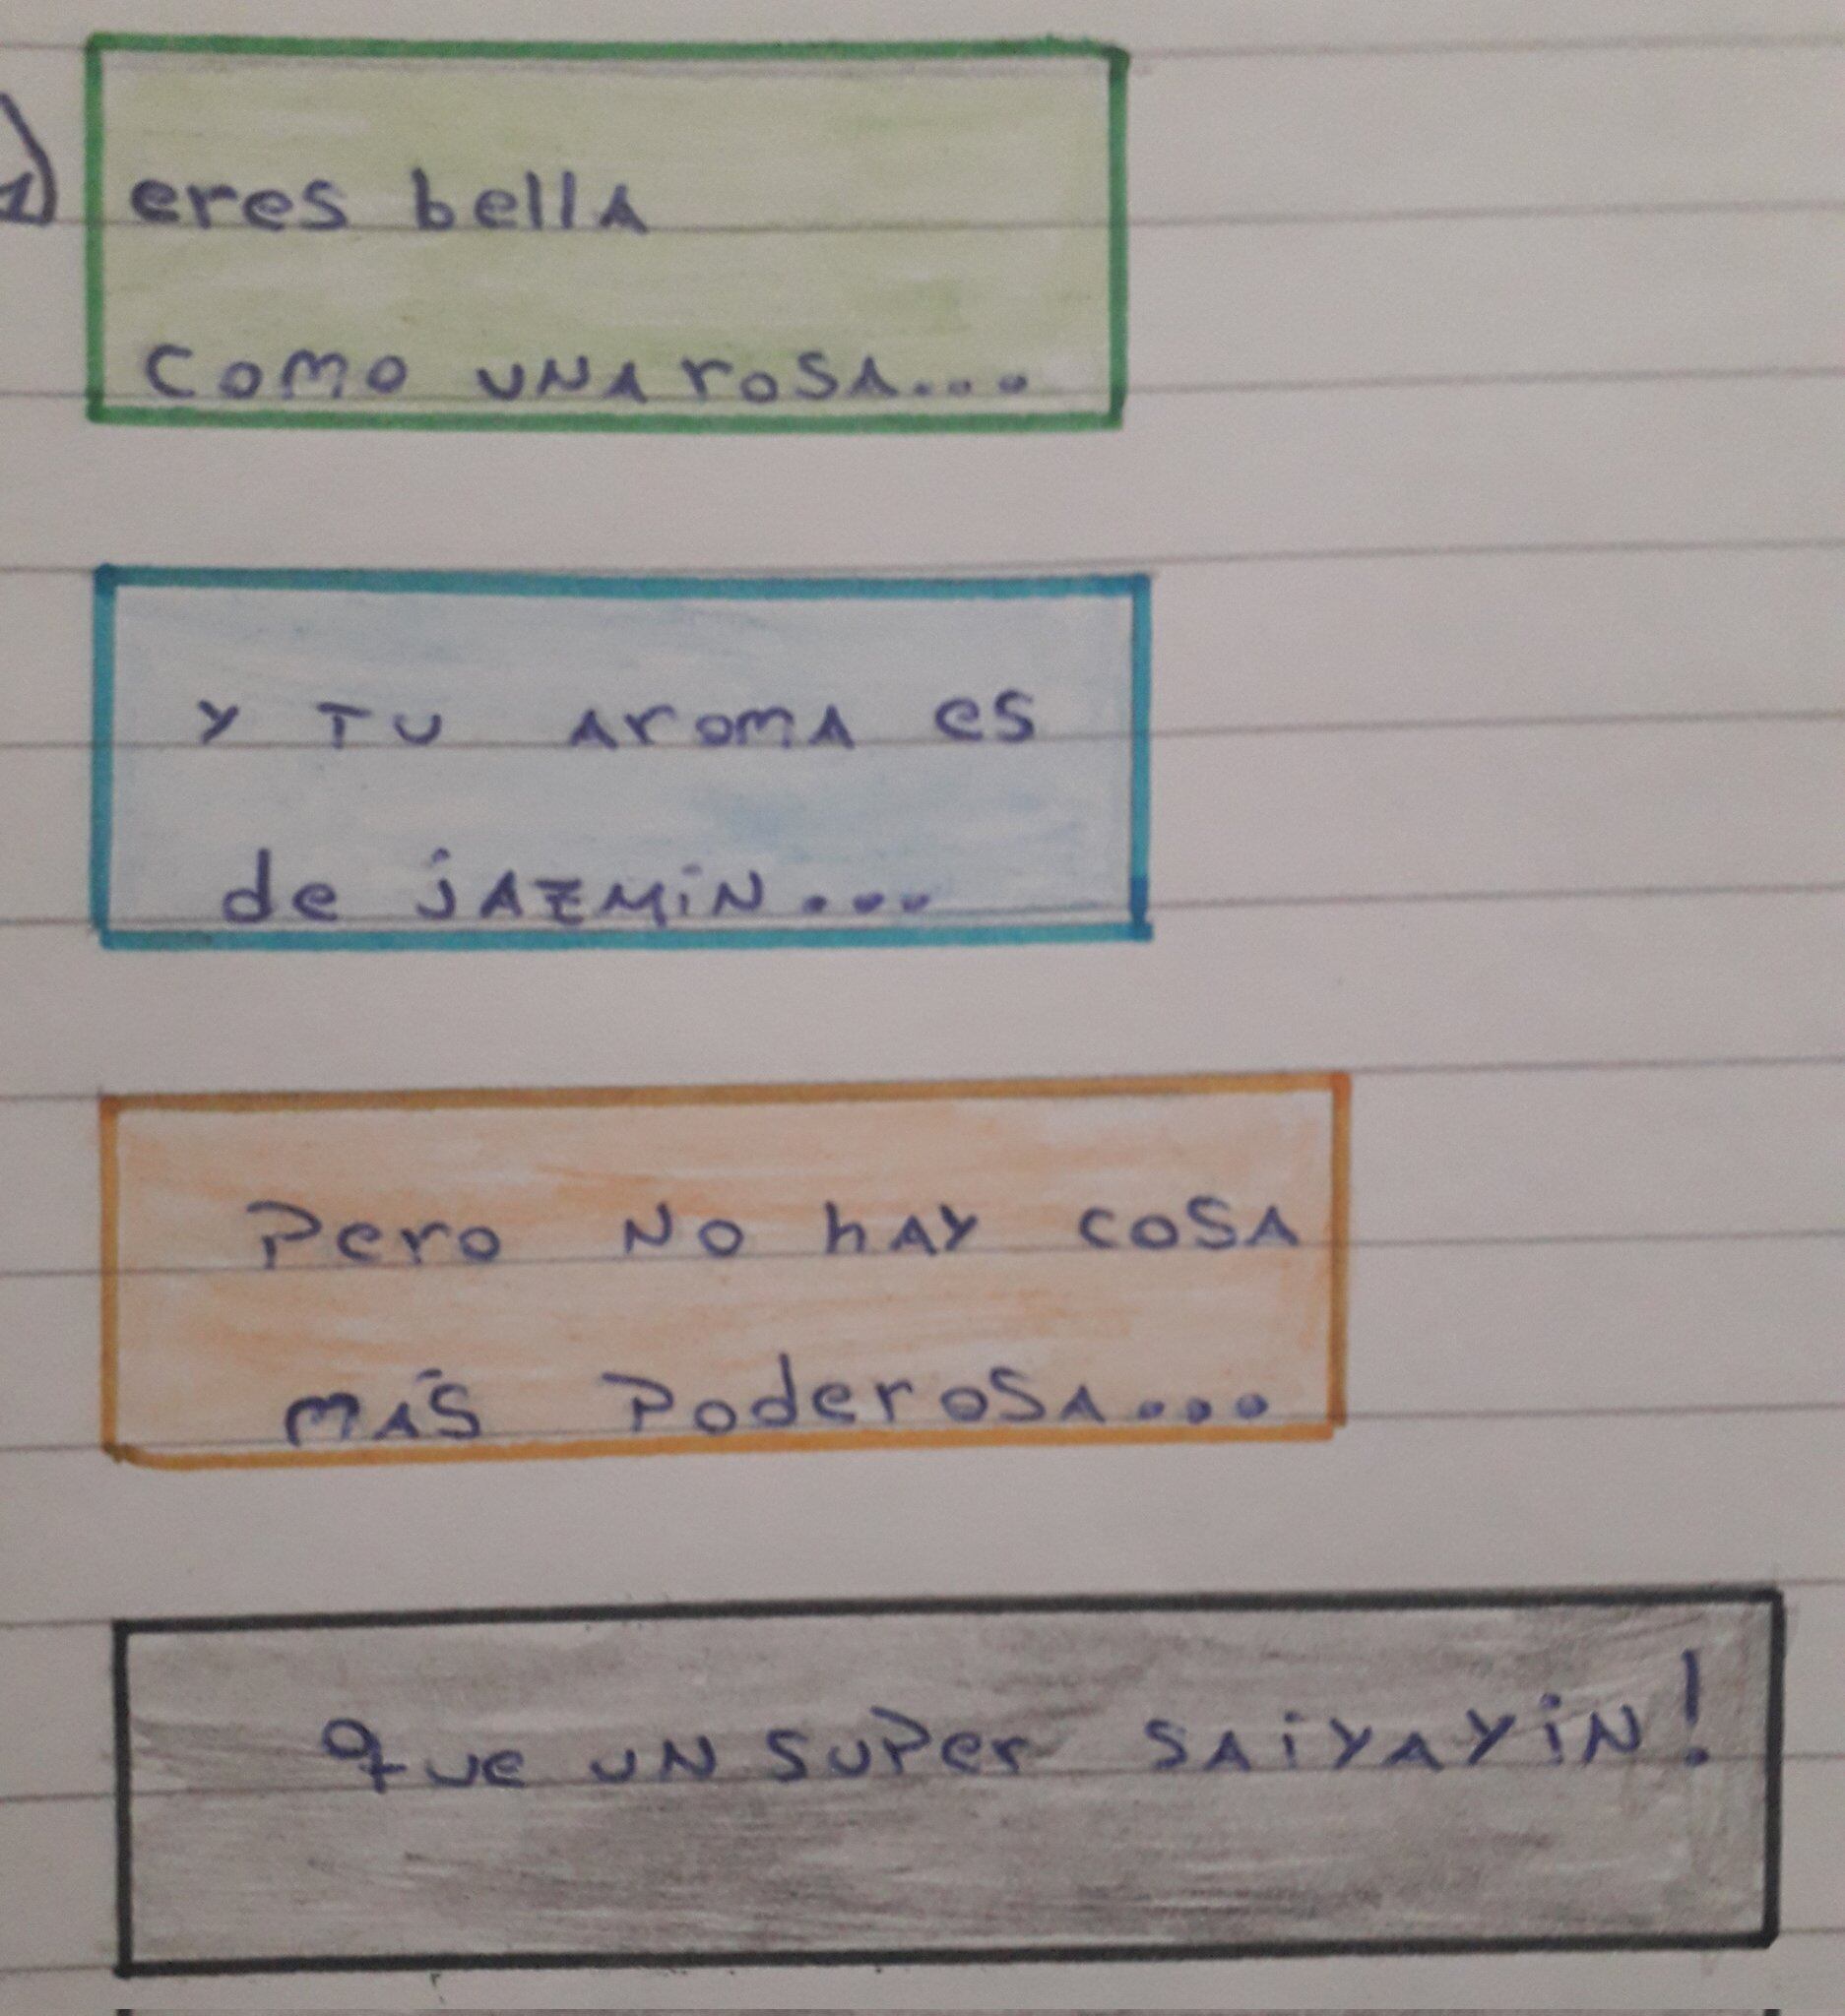 1) eres bella
como una rosa...
y tu aroma es
de jazmin...
Pero no hay cosa
más Poderosa...
que un super saiyayin!